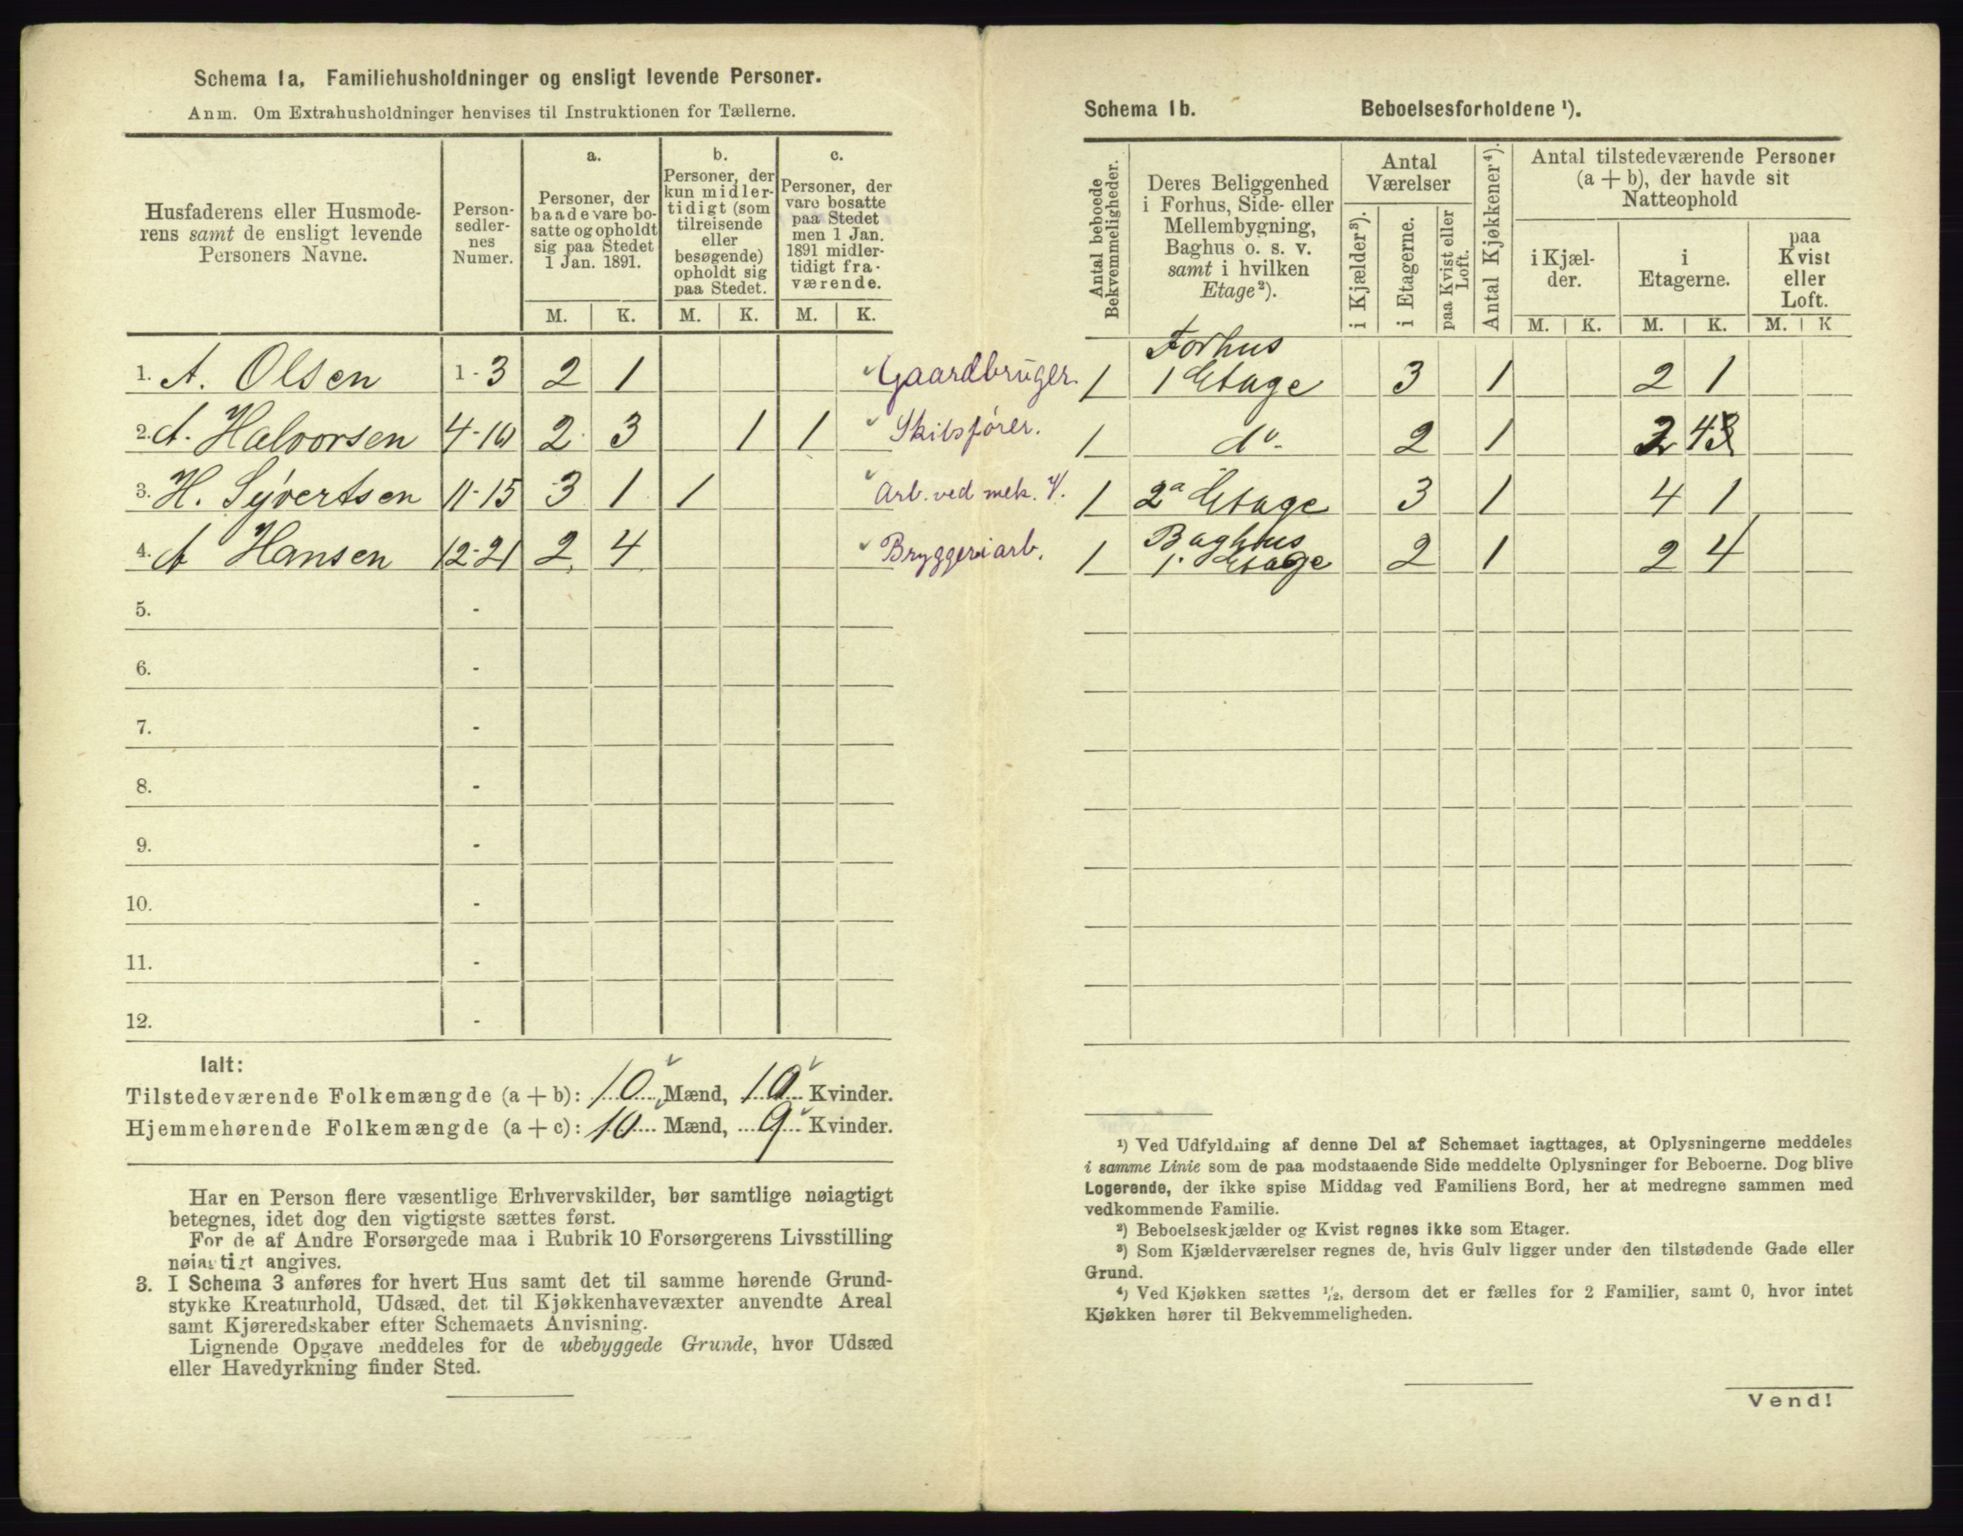 Schema 1a, Familiehusholdninger og ensligt levende Personer.
Anm. Om Extrahusholdninger henvises til Instruktionen for Tællerne.
Husfaderens eller Husmode-
rens samt de ensligt levende
Personers Navne.
Person-
sedler-
nes
Numer.
a.
Personer, der
baade vare bo-
satte og opholdt
sig paa Stedet
1 Jan. 1891.
b.
Personer, der
kun midler-
tidigt (som
tilreisende
eller
besøgende)
opholdt sig
paa Stedet.
c.
Personer, der
vare bosatte
paa Stedet
men 1 Jan.
1891 midler-
tidigt fra-
værende.
M. K. M. K. M. K.
1. A. Olsen 1-3 2 1 Gaardbruger.
2. A. Halvorsen 4-10 2 3 1 1 Skibsfører.
3. H. Syvertsen 11-15 3 1 1 Arb. ved mek. V.
4. A Hansen 12-21 2 4 Bryggeriarb.
5. -
6. -
7. -
8. -
9. -
10. -
11. -
12. -
Ialt:
Tilstedeværende Folkemængde (a+b): 10 Mænd, 10 Kvinder.
Hjemmehørende Folkemængde (a+c): 10 Mænd, 9 Kvinder.
Har en Person flere væsentlige Erhvervskilder, bør samtlige nøiagtigt
betegnes, idet dog den vigtigste sættes først.
For de af Andre Forsørgede maa i Rubrik 10 Forsørgerens Livsstilling
nøiagtigt angives.
3. I Schema 3 anføres for hvert Hus samt det til samme hørende Grund-
stykke Kreaturhold, Udsæd, det til Kjøkkenhavevæxter anvendte Areal
samt Kjøreredskaber efter Schemaets Anvisning.
Lignende Opgave meddeles for de ubebyggede Grunde, hvor Udsæd
eller Havedyrkning finder Sted.
Schema 1b. Beboelsesforholdene ¹).
Antal beboede
Bekvemmeligheder.
Deres Beliggenhed
i Forhus, Side- eller
Mellembygning,
Baghus o. s. v.
samt i hvilken
Etage²).
Antal
Værelser
i Kjælder³).
i Etagerne.
paa Kvist eller
Loft.
Antal Kjøkkener⁴).
Antal tilstedeværende Personer
(a + b), der havde sit
Natteophold
i Kjæl-
der.
i
Etagerne.
paa
Kvist
eller
Loft.
M. K. M. K. M. K
Forhus
1 1 Etage 3 1 2 1
1 do. 2 1 2 4
1 2a Etage 3 1 4 1
Baghus
1 1. Etage 2 1 2 4
¹) Ved Udfyldning af denne Del af Schemaet iagttages, at Oplysningerne meddeles
i samme Linie som de paa modstaaende Side meddelte Oplysninger for Beboerne. Dog blive
Logerende, der ikke spise Middag ved Familiens Bord, her at medregne sammen med
vedkommende Familie.
²) Beboelseskjælder og Kvist regnes ikke som Etager.
³) Som Kjælderværelser regnes de, hvis Gulv ligger under den tilstødende Gade eller
Grund.
⁴) Ved Kjøkken sættes ½, dersom det er fælles for 2 Familier, samt 0, hvor intet
Kjøkken hører til Bekvemmeligheden.
Vend!